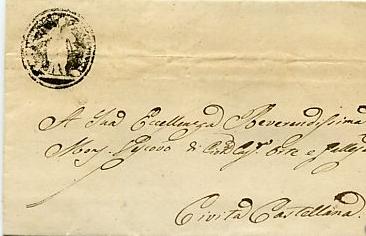 A Sua Eccellenza Reverendissima
Mons. Vescovo di Civ. Cast. Orte e Gallese
Civita Castellana.